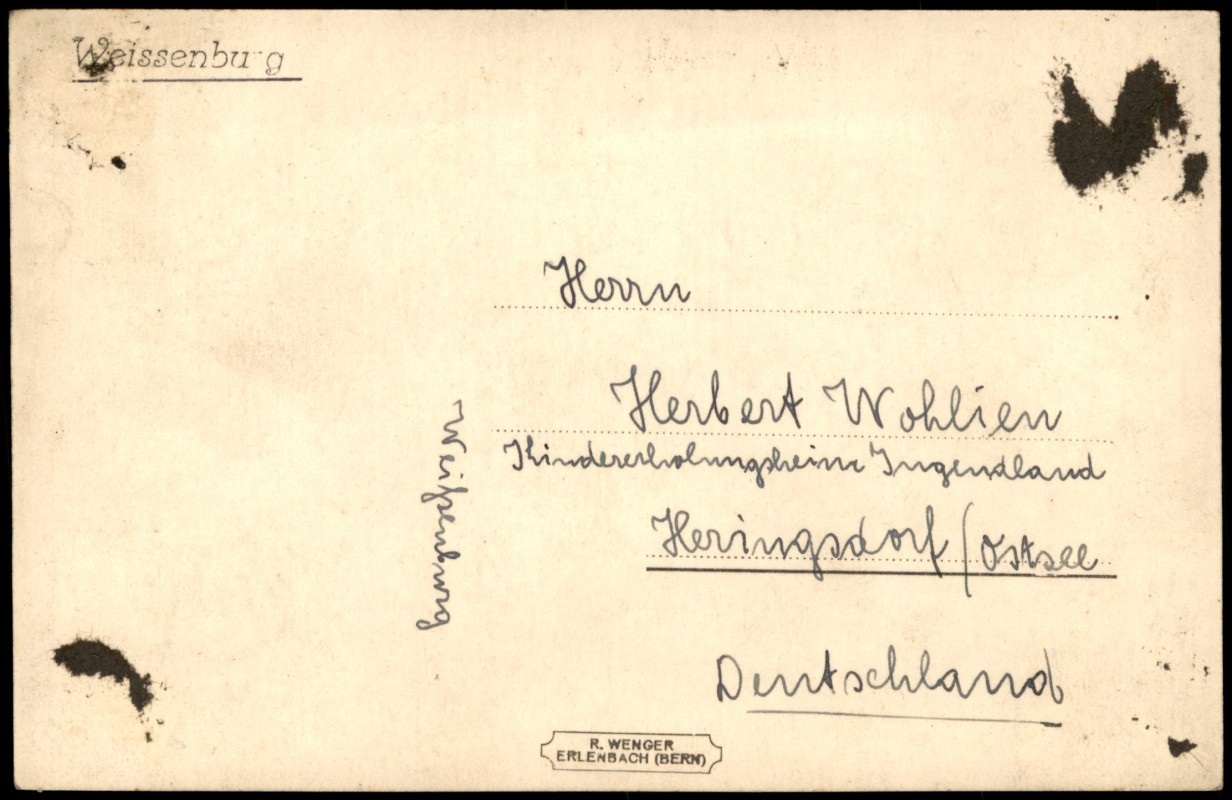 Weissenburg
Herrn
Herbert Wohlien
Kindererholungsheim Jugendland
Heringsdorf / Ostsee
Deutschland
Weißenburg
R. WENGER
ERLENBACH (BERN)